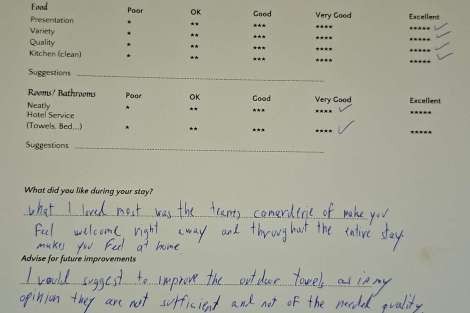 Food Poor OK Good Very Good Excellent
Presentation * ** *** **** ***** ✓
Variety * ** *** **** ***** ✓
Quality * ** *** **** ***** ✓
Kitchen (clean) * ** *** **** ***** ✓
Suggestions
Rooms/ Bathrooms Poor OK Good Very Good Excellent
Neatly * ** *** **** ✓ *****
Hotel Service
(Towels, Bed...) * ** *** **** ✓ *****
Suggestions
What did you like during your stay?
what I loved most was the teams camarderie of make you
Feel welcome right away and throughout the entire stay.
makes you Feel at home
Advise for future improvements
I would suggest to improve the outdoor towels as in my
opinion they are not sufficient and not of the needed quality